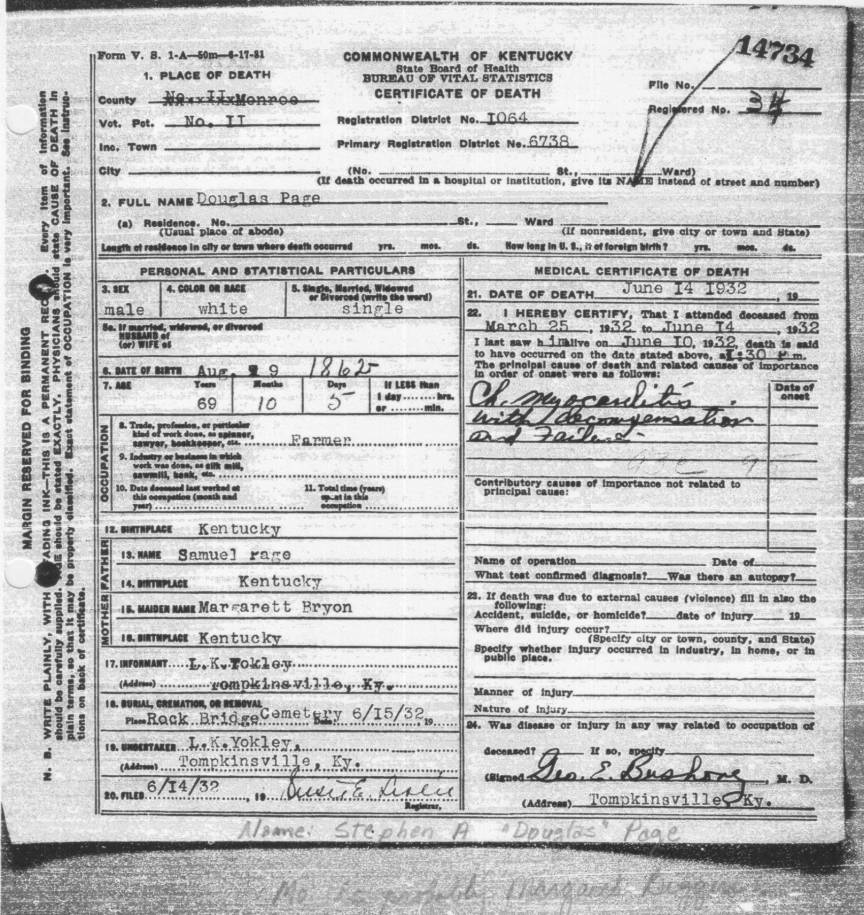 14734
Form V. S. 1-A—50m—6-17-31
COMMONWEALTH OF KENTUCKY
State Board of Health
BUREAU OF VITAL STATISTICS
CERTIFICATE OF DEATH
File No.
Registered No. 34
1. PLACE OF DEATH
County No. II Monroe
Vot. Pct. No. II
Registration District No. I064
Inc. Town
Primary Registration District No. 6738
City (No. St., Ward)
(If death occurred in a hospital or institution, give its NAME instead of street and number)
2. FULL NAME Douglas Page
(a) Residence. No. St., Ward
(Usual place of abode) (If nonresident, give city or town and State)
Length of residence in city or town where death occurred yrs. mos. ds. How long in U. S., if of foreign birth? yrs. mos. ds.
PERSONAL AND STATISTICAL PARTICULARS
3. SEX 4. COLOR OR RACE 5. Single, Married, Widowed
or Divorced (write the word)
male white single
5a. If married, widowed, or divorced
HUSBAND of
(or) WIFE of
6. DATE OF BIRTH Aug. 9 1862
7. AGE Years Months Days If LESS than
1 day hrs.
or min.
69 10 5
OCCUPATION
8. Trade, profession, or particular
kind of work done, as spinner,
sawyer, bookkeeper, etc. Farmer
9. Industry or business in which
work was done, as silk mill,
sawmill, bank, etc.
10. Date deceased last worked at
this occupation (month and
year)
11. Total time (years)
spent in this
occupation
12. BIRTHPLACE Kentucky
FATHER
13. NAME Samuel Page
14. BIRTHPLACE Kentucky
MOTHER
15. MAIDEN NAME Margarett Bryon
16. BIRTHPLACE Kentucky
17. INFORMANT L.K.Yokley
(Address) Tompkinsville, Ky.
18. BURIAL, CREMATION, OR REMOVAL
Place Rock Bridge Cemetery Date 6/15/32, 19
19. UNDERTAKER L.K.Yokley,
(Address) Tompkinsville, Ky.
20. FILED 6/14/32, 19
Registrar.
MEDICAL CERTIFICATE OF DEATH
21. DATE OF DEATH June I4 I932, 19
22. I HEREBY CERTIFY, That I attended deceased from
March 25, 1932 to June I4, 1932
I last saw him alive on June IO, 1932, death is said
to have occurred on the date stated above, at :30 P m.
The principal cause of death and related causes of importance
in order of onset were as follows:
Date of
onset
Ch. Myocarditis
with decompensation
and
Contributory causes of importance not related to
principal cause:
Name of operation Date of
What test confirmed diagnosis? Was there an autopsy?
23. If death was due to external causes (violence) fill in also the
following:
Accident, suicide, or homicide? date of injury 19
Where did injury occur?
(Specify city or town, county, and State)
Specify whether injury occurred in industry, in home, or in
public place.
Manner of injury
Nature of injury
24. Was disease or injury in any way related to occupation of
deceased? If so, specify
(Signed Geo. E. Bushong M. D.
(Address) Tompkinsville, Ky.
MARGIN RESERVED FOR BINDING
N. B. WRITE PLAINLY, WITH ADING INK—THIS IS A PERMANENT REC Every item of information
should be carefully supplied. AGE should be stated EXACTLY. PHYSICIANS should state CAUSE OF DEATH in
plain terms, so that it may be properly classified. Exact statement of OCCUPATION is very important. See instruc-
tions on back of certificate.
Name: Stephen A "Douglas" Page
Mo. is probably Margaret